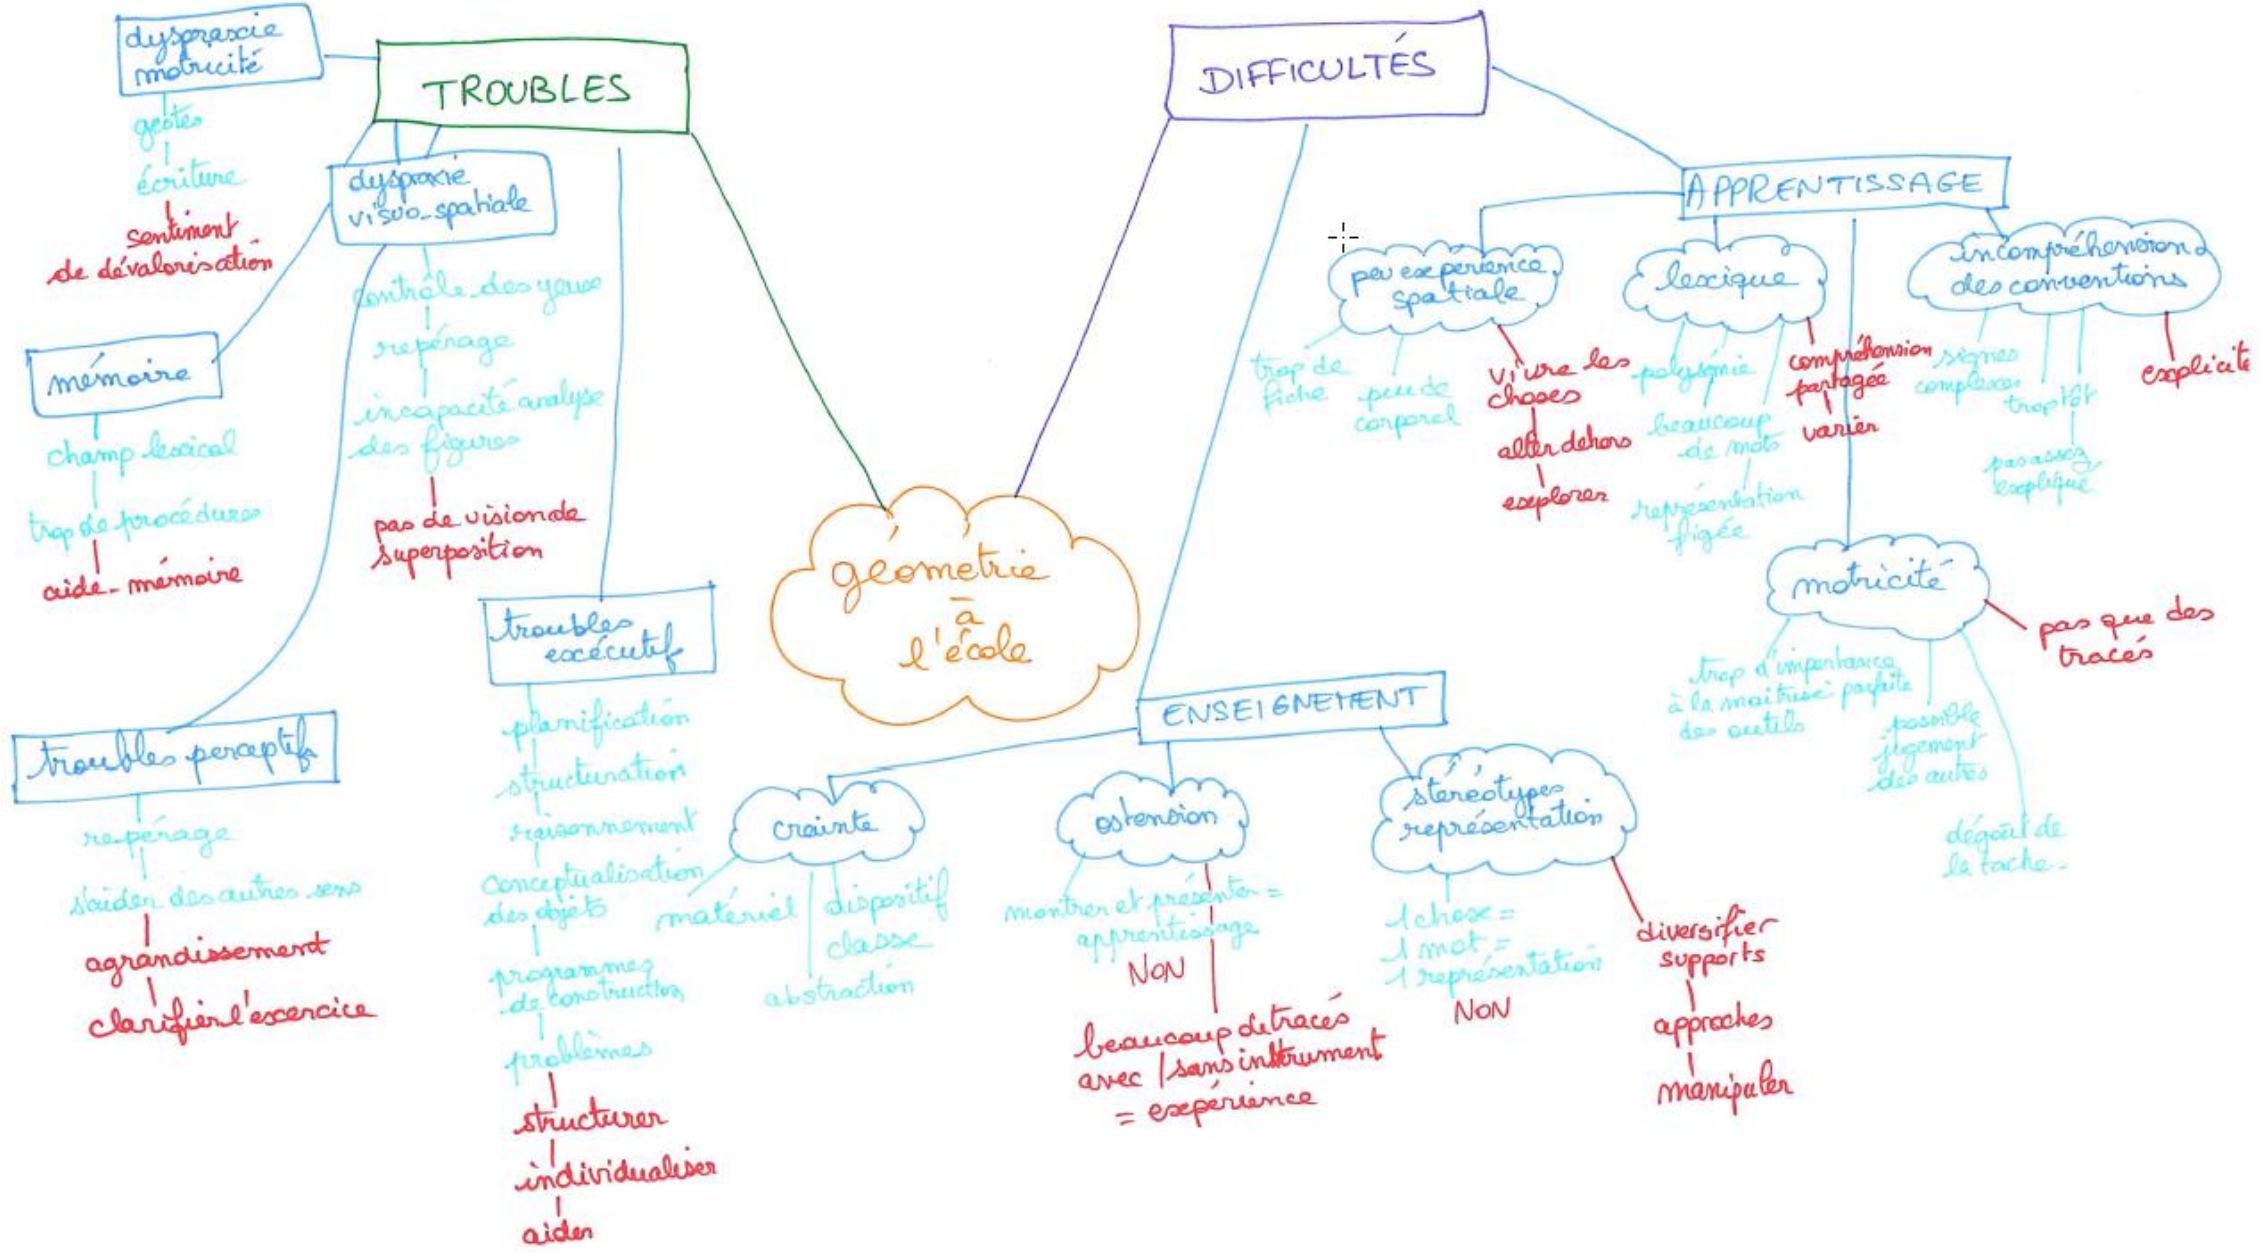 TROUBLES
dyspraxie
motricité
gestes
écriture
sentiment
de dévalorisation
dyspraxie
visuo-spatiale
contrôle des yeux
repérage
incapacité analyse
des figures
pas de vision de
superposition
mémoire
champ lexical
trop de procédures
aide-mémoire
troubles perceptifs
repérage
s'aider des autres sens
agrandissement
clarifier l'exercice
troubles
exécutif
planification
structuration
raisonnement
conceptualisation
des objets
programmes
de construction
problèmes
structurer
individualiser
aider
géométrie
à
l'école
DIFFICULTÉS
APPRENTISSAGE
peu expérience
spatiale
trop de
fiche
peu de
corporel
vivre les
choses
aller dehors
explorer
lexique
polysémie
beaucoup
de mots
représentation
figée
compréhension
partagée
varier
incompréhension
des conventions
signes
complexes
trop tôt
pas assez
expliqué
explicite
motricité
trop d'importance
à la maitrise parfaite
des outils
possible
jugement
des autres
dégoût de
la tache
pas que des
tracés
ENSEIGNEMENT
crainte
matériel
abstraction
dispositif
classe
ostension
montrer et présenter =
apprentissage
NON
beaucoup de tracés
avec / sans instrument
= expérience
stéréotypes
représentation
1 chose =
1 mot =
1 représentation
NON
diversifier
supports
approches
manipuler